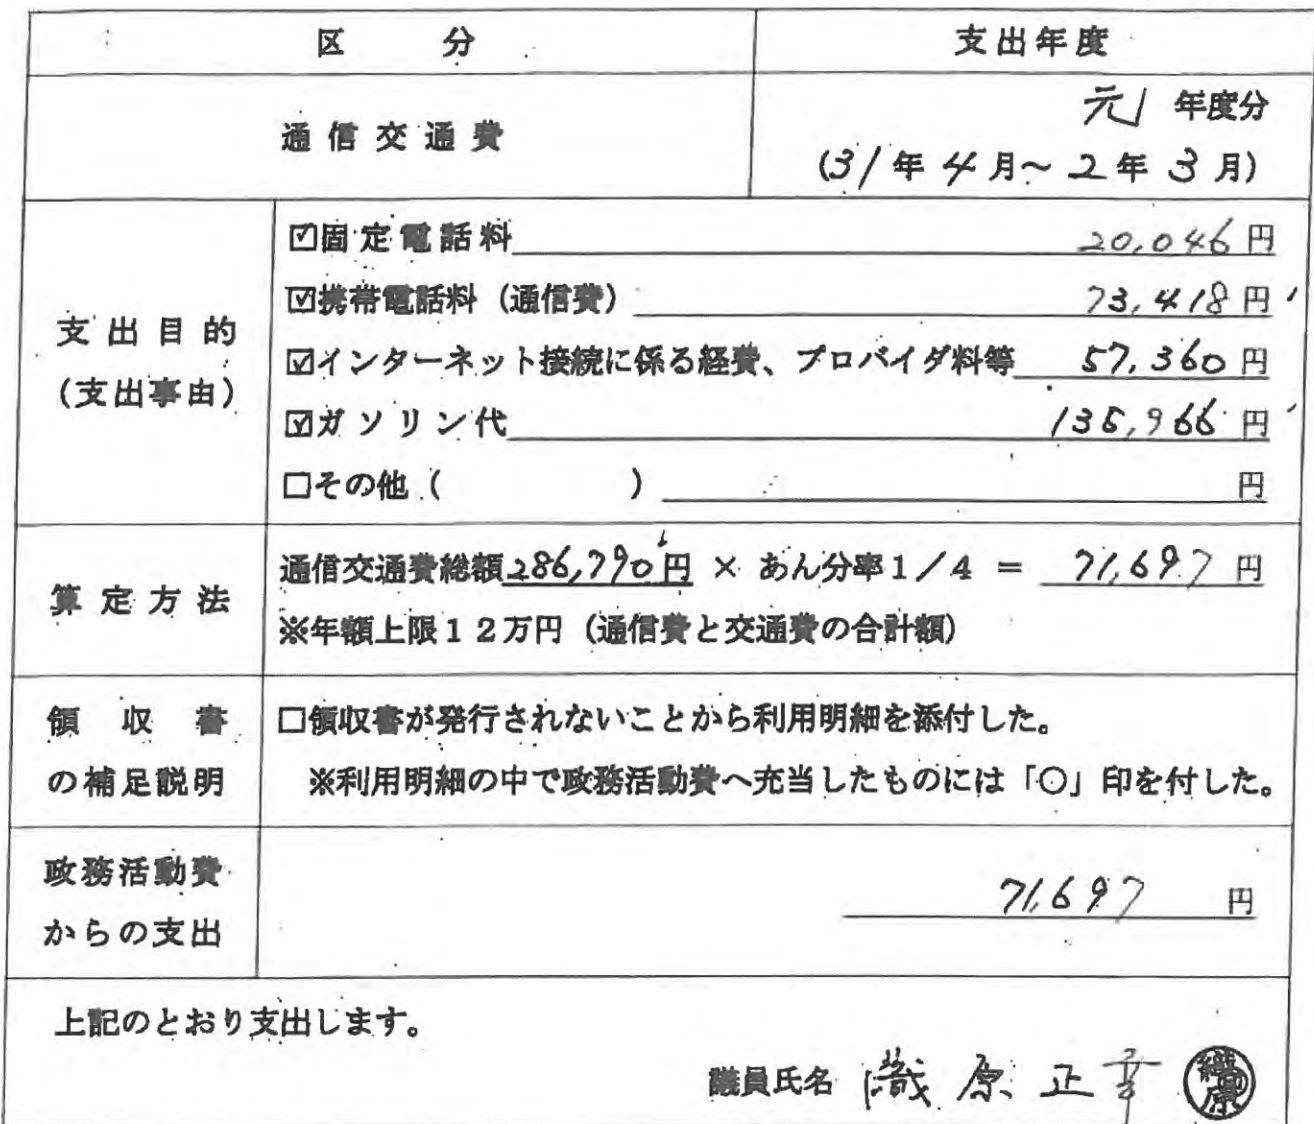 区 分 支出年度
通信交通費
元 年度分
(31年4月～2年3月)
支出目的
(支出事由)
☑固定電話料 20,046円
☑携帯電話料（通信費） 73,418円
☑インターネット接続に係る経費、プロバイダ料等 57,360円
☑ガソリン代 135,966円
□その他（ ） 円
算定方法
通信交通費総額286,790円 × あん分率1／4 ＝ 71,697円
※年額上限12万円（通信費と交通費の合計額）
領収書
の補足説明
□領収書が発行されないことから利用明細を添付した。
※利用明細の中で政務活動費へ充当したものには「○」印を付した。
政務活動費
からの支出
71,697 円
上記のとおり支出します。
議員氏名 織原正幸 織原